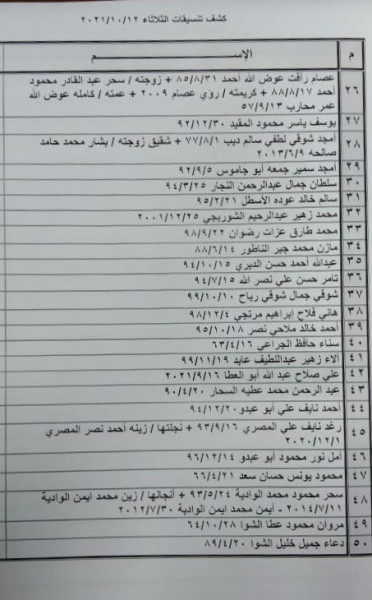 كشف تنسيقات الثلاثاء ٢٠٢١/١٠/١٢
م الإســـــــم
٢٦ عصام رأفت عوض الله أحمد ٨٥/٨/٣١ + زوجته / سحر عبد القادر محمود
أحمد ٨٨/٨/١٧ + كريمته / روي عصام ٢٠٠٩ + عمته / كامله عوض الله
عمر محارب ٥٧/٩/١٣
٢٧ يوسف ياسر محمود المقيد ٩٢/١٢/٣٠
٢٨ أمجد شوقي لطفي سالم ديب ٧٧/٨/١ + شقيق زوجته / بشار محمد حامد
صالحه ٢٠١٣/٦/٩
٢٩ أمجد سمير جمعه أبو جاموس ٩٢/٩/٥
٣٠ سلطان جمال عبدالرحمن النجار ٩٤/٣/٢٥
٣١ سالم خالد عوده الأسطل ٩٥/٢/٢١
٣٢ محمد زهير عبدالرحيم الشوربجي ٢٠٠١/١٢/٢٥
٣٣ محمد طارق عزات رضوان ٩٨/٩/٢٢
٣٤ مازن محمد جبر الناطور ٨٨/٦/١٤
٣٥ عبدالله أحمد حسن الديري ٩٤/١٠/١٥
٣٦ تامر حسن علي نصر الله ٩٤/٧/١٥
٣٧ شوقي جمال شوقي رباح ٩٩/١٠/١٠
٣٨ هاني فلاح إبراهيم مرتجي ٩٨/١٢/٤
٣٩ أحمد خالد ملاحي نصر ٩٥/١٠/١٨
٤٠ سناء حافظ الجراعي ٦٣/٤/١٦
٤١ ألاء زهير عبداللطيف عابد ٩٩/١١/١٩
٤٢ علي صلاح عبد الله أبو العطا ٢٠٢١/٩/١٦
٤٣ عبد الرحمن محمد عطيه السحار ٩٠/٤/٢٠
٤٤ أحمد نايف علي أبو عبدو ٩٤/١٢/٢٠
٤٥ رغد نايف علي المصري ٩٣/٩/١٦ + نجلتها / زينه أحمد نصر المصري
٢٠٢٠/١٢/١
٤٦ أمل نور محمود أبو عبدو ٩٦/١٢/١٤
٤٧ محمود يونس حسان سعد ٦٦/٤/٢١
٤٨ سحر محمود محمد الوادية ٩٣/٥/٢٤ + أنجالها / زين محمد أيمن الوادية
٢٠١٤/٧/١١ - أيمن محمد أيمن الوادية ٢٠١٢/٧/٣٠
٤٩ مروان محمود عطا الشوا ٦٤/١٠/٢٨
٥٠ دعاء جميل خليل الشوا ٨٩/٤/٢٠